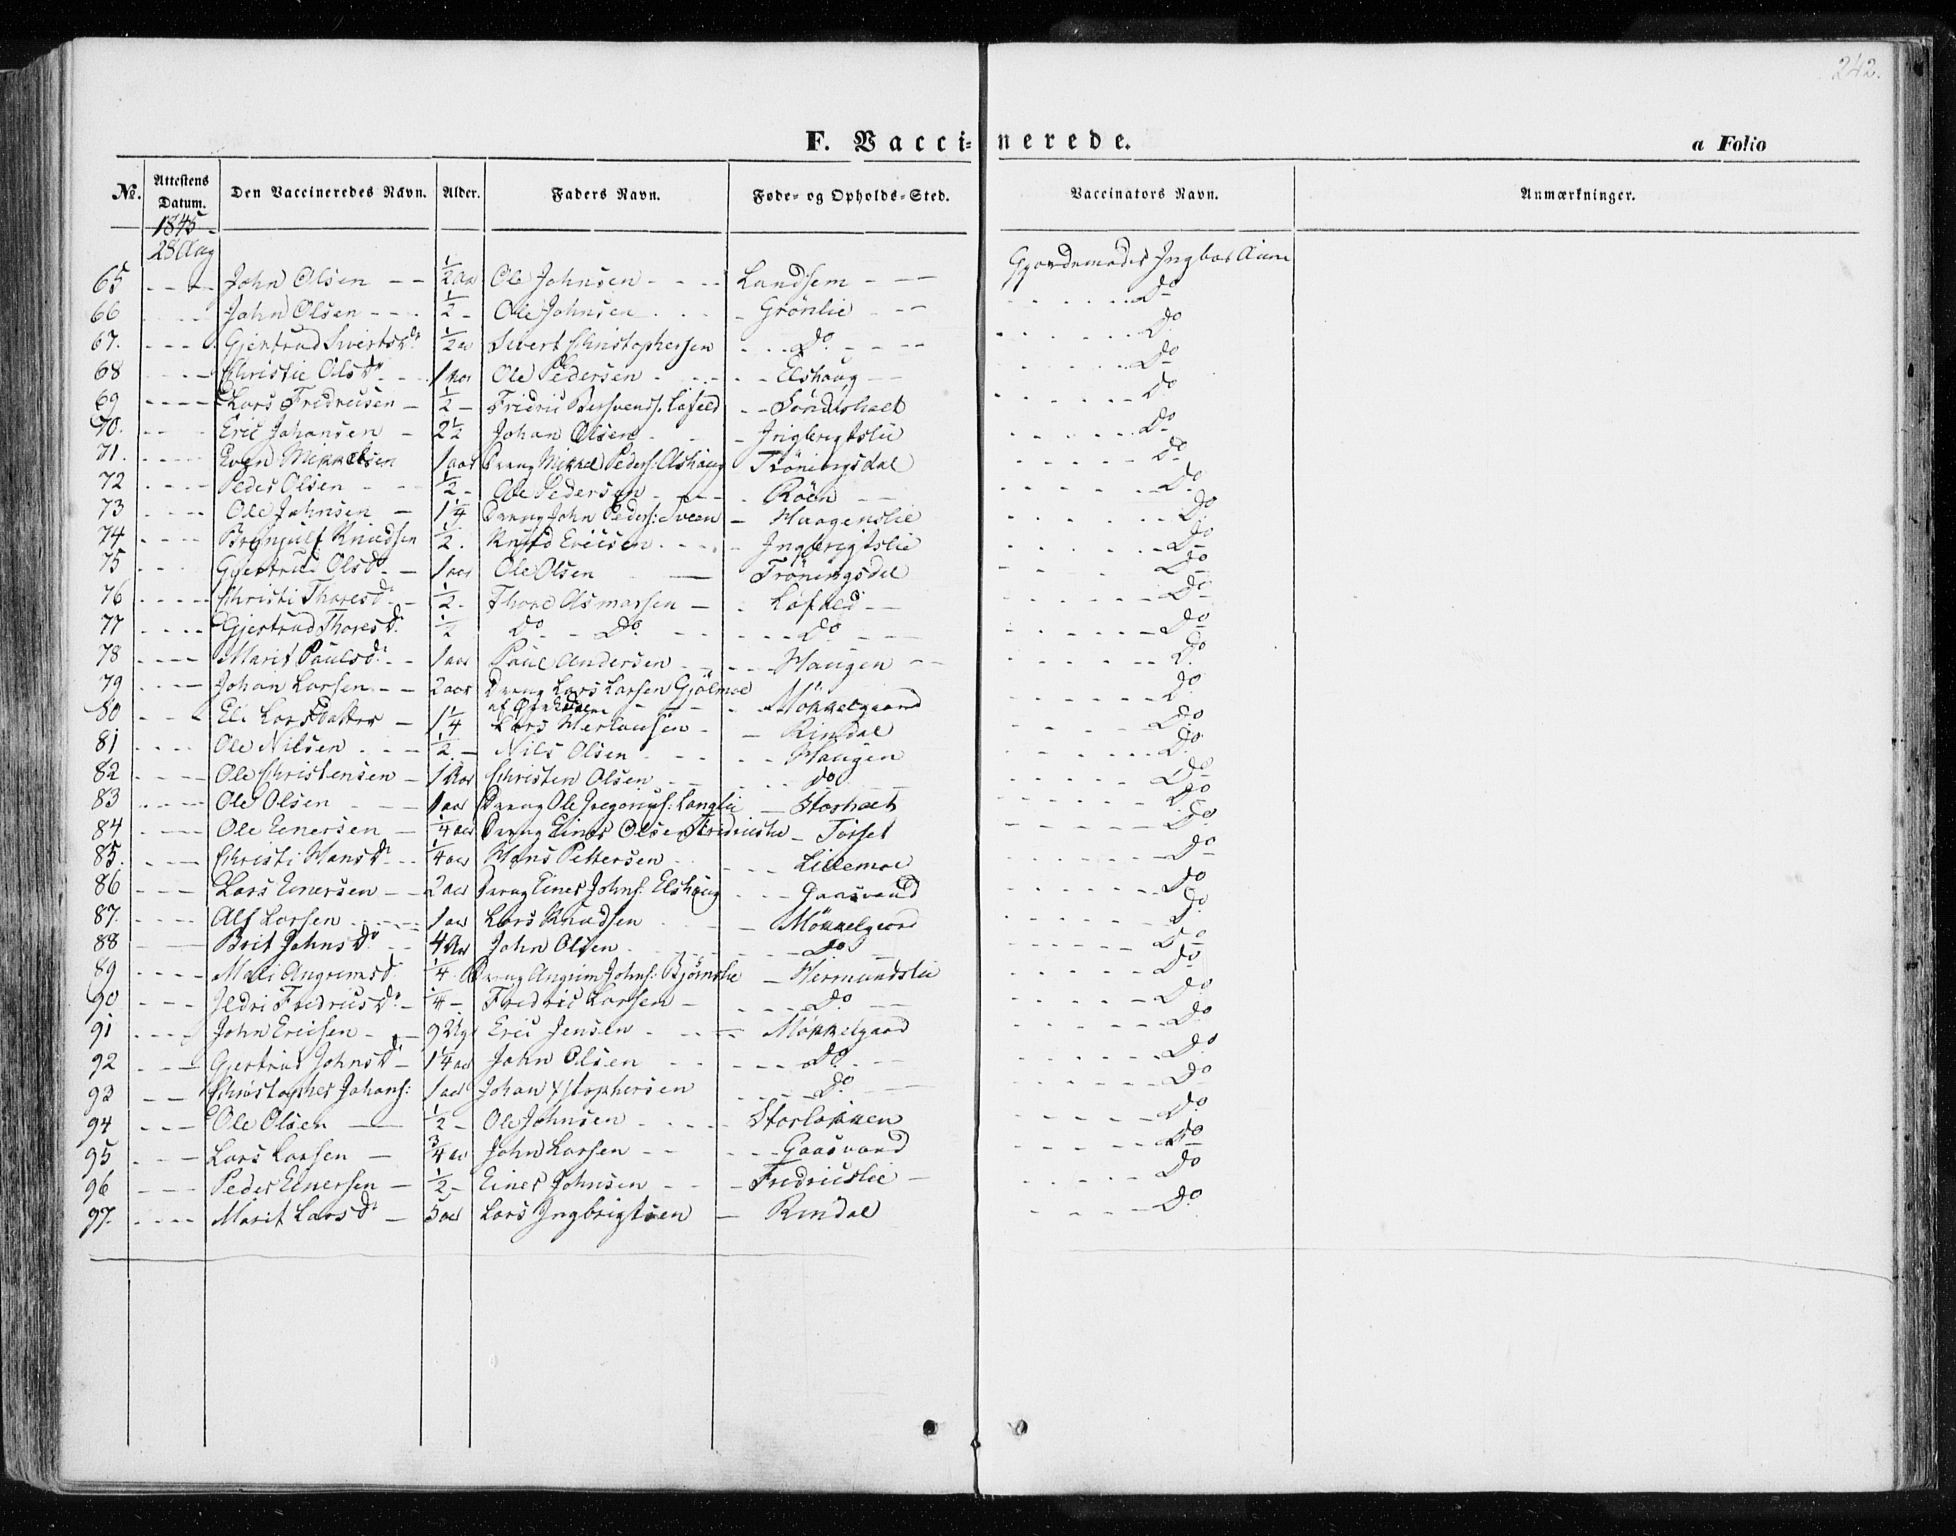 242.
F. Vaccinerede.
a Folio
No. Attestens Datum. Den Vaccineredes Navn. Alder. Faders Navn. Føde- og Opholds-Sted. Vaccinators Navn. Anmærkninger.
1845
28 Aug
65 - - - John Olsen - - 1/2 aar Ole Johnsen - - - - Landsem - - - Gjordemoder Ingbor Aune
66 - - - John Olsen - - - 1/2 - Ole Johnsen - - - Grönlie - - - - - - - Do
67. - - - Gjertrud Sivertsdr 1/2 aar Sivert Christophersen - - - Do - - - - - - - - Do
68 - - - Christie Olsdr - - 1 aar Ole Pedersen - - - - - Elshaug - - - - - - Do
69 - - - - Lars Fredricsen - 1/2 - Fridric Bersvends. Løfald - - Söndishaet - - - - - Do
70. - - - Eric Johansen - 2 1/2 Johan Olsen - - - Ingbrigtslie - - - - - Do
71. - - - - Even Mikkelsen 1 aar Drang Mikkel Peders: Elshaug Tröningsdal - - - - - Do
72 - - - - Peder Olsen - - - 1/2 - Ole Pedersen - - - - Röen - - - - - - - Do
73 - - - - Ole Johnsen - 1 1/4 Drang John Peders: Sveen - Haagenslie - - - - - Do
74 - - - - Brynjulf Knudsen 1/2. Knud Ericsen - - - - Ingbrigtslie - - - - - Do
75 - - - Gjertrud Olsdr - 1 aar Ole Olsen - Tröningsdal - - - - Do
76 - - - - Christi Thoresdr - 1/2 - Thore Asmorsen - - Løfald - - - - - - - Do
77 - - - - Gjertrud Thoresdr. 1/2 Do - Do. - - - - - Do - - - - - - - - Do
78 - - - - Marit Paulsdr. - - 1 aar Paul Andersen - - - - Haugen - - - - - - - - Do
79 - - - - Johan Larsen - - - 2 aar Drang Lars Larsen Gjölmoe
- - - - - Mökkelgaard - - - - - Do
80 - - - Eli Larsdatter - 1 1/4 Lars Herlousen - - Rindal - - - - - Do
81 - - - - Ole Nilsen - - - - 1/2 - Nils Olsen - - - - - Haugen - - - - - Do
82 - - - - Ole Christensen - 1 aar Christen Olsen - - - - Do - - - - - - - Do
83 - - - - Ole Olsen - - - 1 aar Drang Ole Gregorius: Langlie - Storhaet - - - - - Do
84 - - - Ole Einersen - 1/4 aar Drang Einer Olsen Fridricslie - Törset - - - - - Do
85. - - - Christi Hansdr - - 1/4 aar Hans Pettersen - - - - Lillemoe - - - - - Do
86 - - - Lars Einersen - - 2 aar Drang Einer Johns. Elshaug - - - Gaasvand - - - - - Do
87. - - - - Alf Larsen - - - - 1 aar Lars Knudsen - - Mökkelgaard - - - - - Do
88 - - Brit Johnsdr. - - 4 aar John Olsen - - - - Do - - - - - - - Do
89 - - - - Mali Angrimsd. 1/4 Drang Angrim Johns: Bjørnslie - Hermundslie - - - - - Do
90 - - - Ildri Fredricsdr. - 1/4 - Fredric Larsen - - - - - Do - - - - - - - Do
91 - - - - John Ericsen - - 9 Uger Eric Jensen - - - - Mökkelgaard - - - - - Do
92 - - - Gjertrud Johnsdr - 1 1/4 aar John Olsen - - - - - - Do - - - - - - - Do
93 - - Christopher Johans: 1 aar Johan Xstophersen - - - - Do - - - - - - Do
94 - - - Ole Olsen - - 1/2 - Ole Johnsen - - - - Storløkken - - - - - Do
95 - - - Lars Larsen - 3/4 aar John Larsen - - - - - Gaasvand - - - - - Do
96 - - - Peder Einersen - 1/2 - Einer Johnsen - - - Fredricslie - - - - - - Do
97. - - - - Marit Larsdr - 5 aar Lars Ingbrigtsen - Rindal - - - - - Do